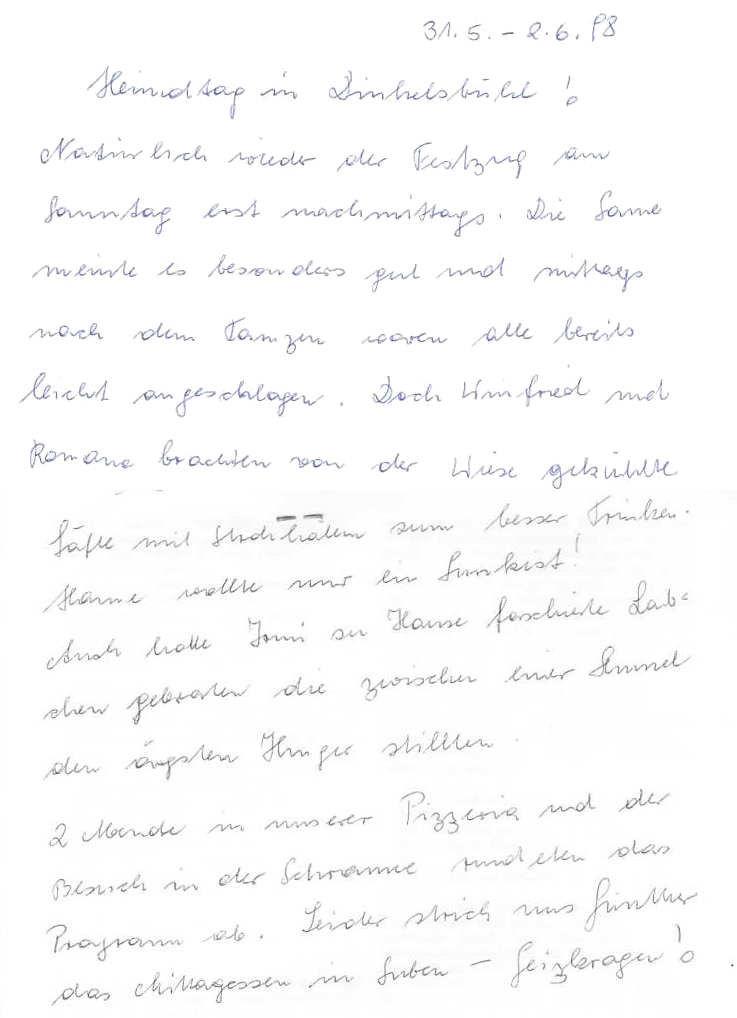 31.5. - 2.6.98
Heimattag in Dinkelsbühl!
Natürlich wieder der Festzug am
Sonntag erst nachmittags. Die Sonne
meinte es besonders gut und mittags
nach dem Tanzen waren alle bereits
leicht angeschlagen. Doch Winfried und
Romana brachten von der Wiese gekühlte
Säfte mit Strohhalm zum besser Trinken.
Hanne wollte nur ein Sunkist!
Auch hatte Irmi zu Hause faschierte Lab=
chen gebraten die zwischen einer Semmel
den ärgsten Hunger stillten.
2 Abende in unserer Pizzeria und der
Besuch in der Schranne rundeten das
Programm ab. Leider strich uns Günther
das Mittagessen in Suben - Geizkragen!